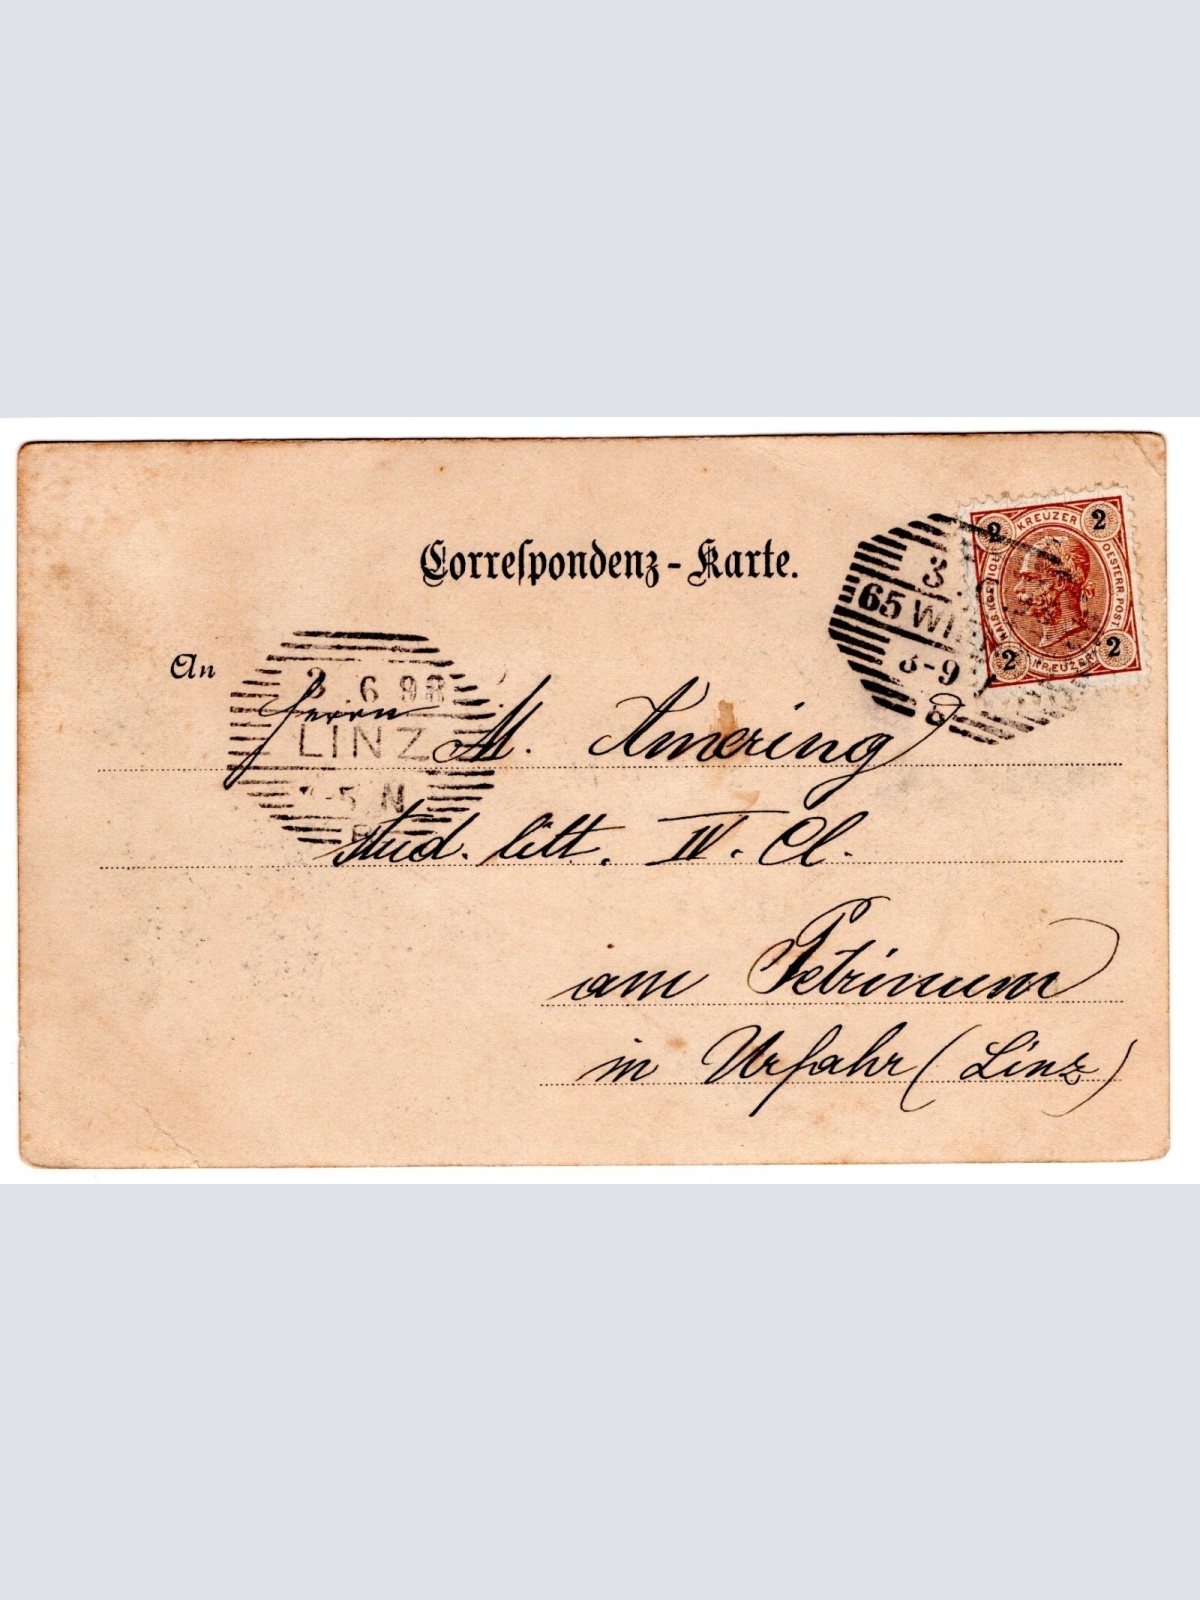 Correſpondenz-Karte.
2 KREUZER 2
KAIS. KOENIGL.
OESTERR. POST.
2 KREUZER 2
3
65 WI
3-9
An
3 6 98
LINZ
-5 N
Herrn M. Amering
stud. litt. IV. Cl.
am Petrinum
in Urfahr (Linz)